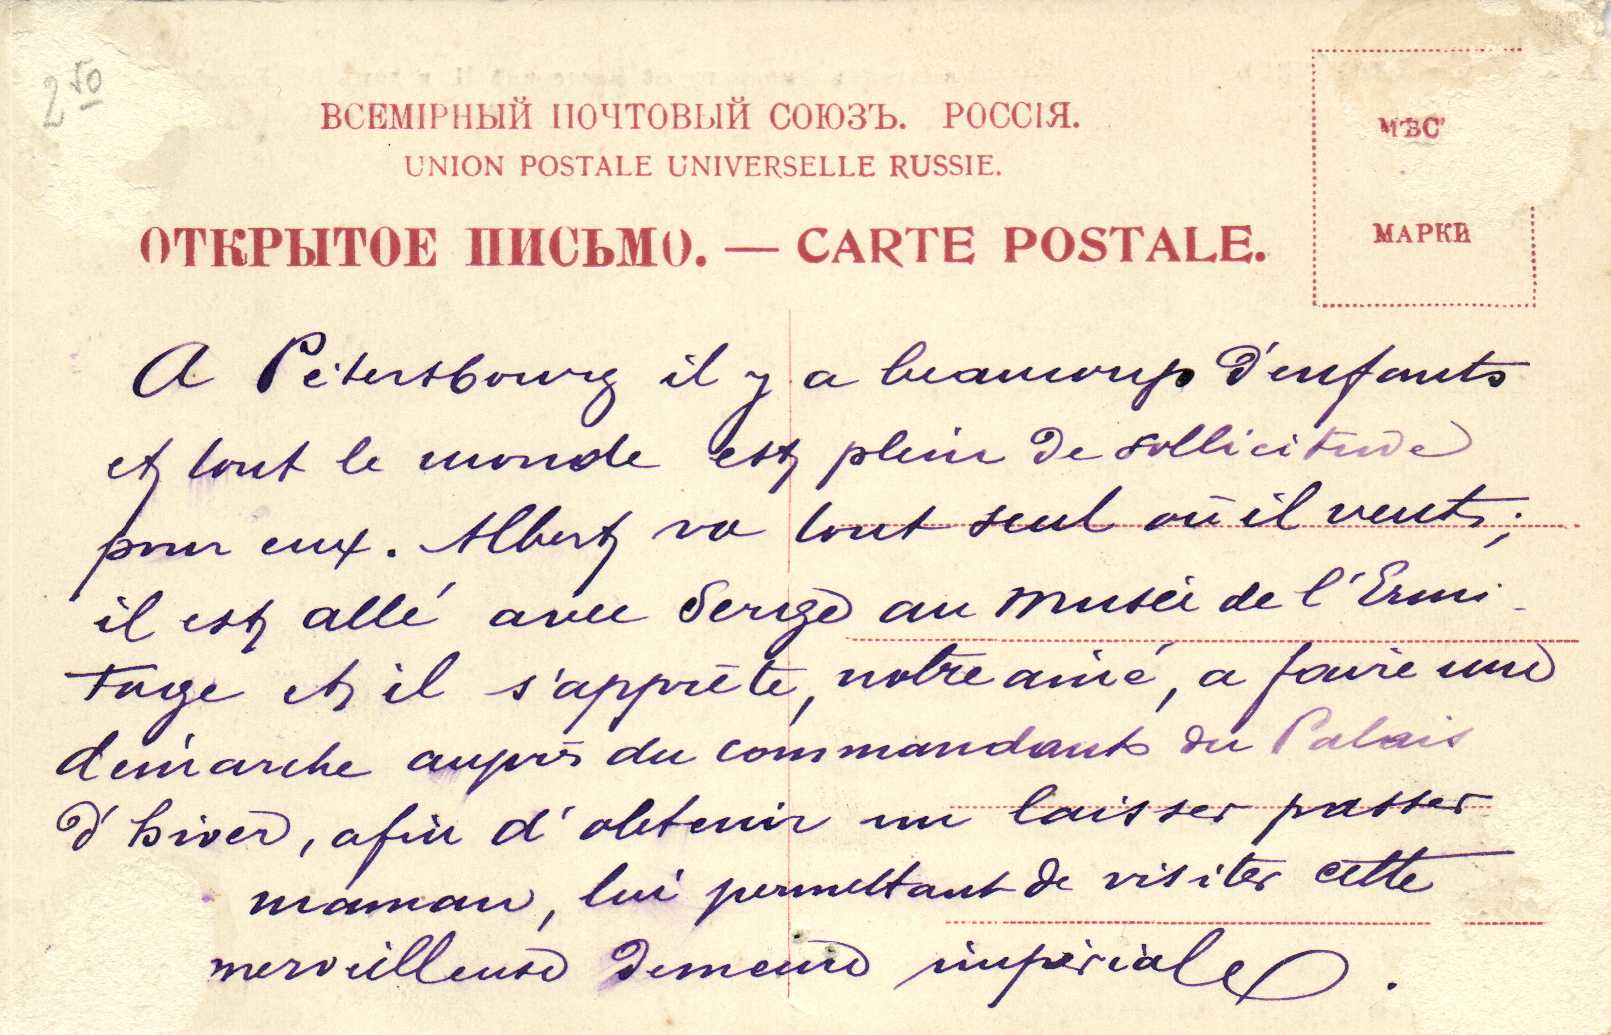 2 50
ВСЕМІРНЫЙ ПОЧТОВЫЙ СОЮЗЪ. РОССІЯ.
UNION POSTALE UNIVERSELLE RUSSIE.
МѢС
ОТКРЫТОЕ ПИСЬМО. — CARTE POSTALE.
МАРКИ
A Pétersbourg il y a beaucoup d'enfants
et tout le monde est plein de sollicitude
pour eux. Albert va tout seul où il veut;
il est allé avec Serge au musée de l'Ermi-
tage et il s'apprête, notre ainé, a faire une
démarche auprès du commandant du Palais
d'hiver, afin d'obtenir un laisser passer
maman, lui permettant de visiter cette
merveilleuse demeure impériale.